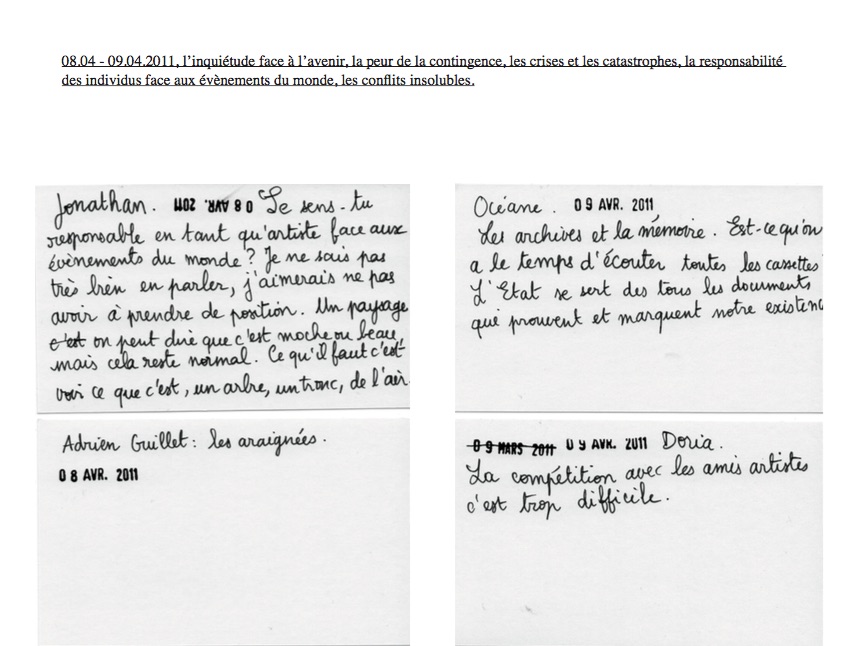 08.04 - 09.04.2011, l’inquiétude face à l’avenir, la peur de la contingence, les crises et les catastrophes, la responsabilité
des individus face aux évènements du monde, les conflits insolubles.
Jonathan. 08 AVR. 2011 Te sens-tu
responsable en tant qu'artiste face aux
évènements du monde ? Je ne sais pas
très bien en parler, j'aimerais ne pas
avoir à prendre de position. Un paysage
c'est on peut dire que c'est moche ou beau,
mais cela reste normal. Ce qu'il faut c'est
voir ce que c'est, un arbre, un tronc, de l'air.
Adrien Guillet : les araignées.
08 AVR. 2011
Océane. 09 AVR. 2011
Les archives et la mémoire. Est-ce qu'on
a le temps d'écouter toutes les cassettes
L'Etat se sert des tous les documents
qui prouvent et marquent notre existenc
09 MARS 2011 09 AVR. 2011 Doria.
La compétition avec les amis artistes
c'est trop difficile.